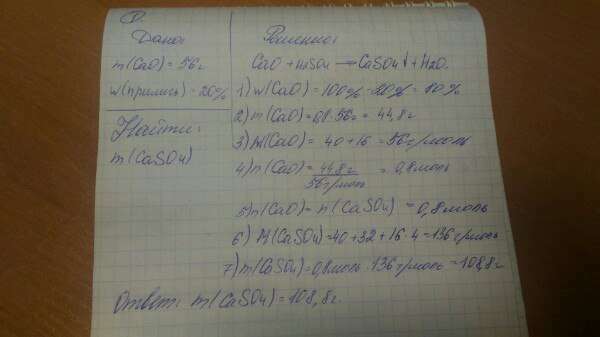 Дано:
m(CaO) = 56г
w(примись) = 20%
Найти:
m(CaSO4)
Решение:
CaO + H2SO4 → CaSO4↓ + H2O.
1) w(CaO) = 100% - 20% = 80%
2) m(CaO) = 0,8 · 56г = 44,8г
3) M(CaO) = 40 + 16 = 56г/моль
4) n(CaO) = 44,8г / 56г/моль = 0,8моль
5) n(CaO) = n(CaSO4) = 0,8моль
6) M(CaSO4) = 40 + 32 + 16 · 4 = 136г/моль
7) m(CaSO4) = 0,8моль · 136г/моль = 108,8г
Ответ: m(CaSO4) = 108,8г.